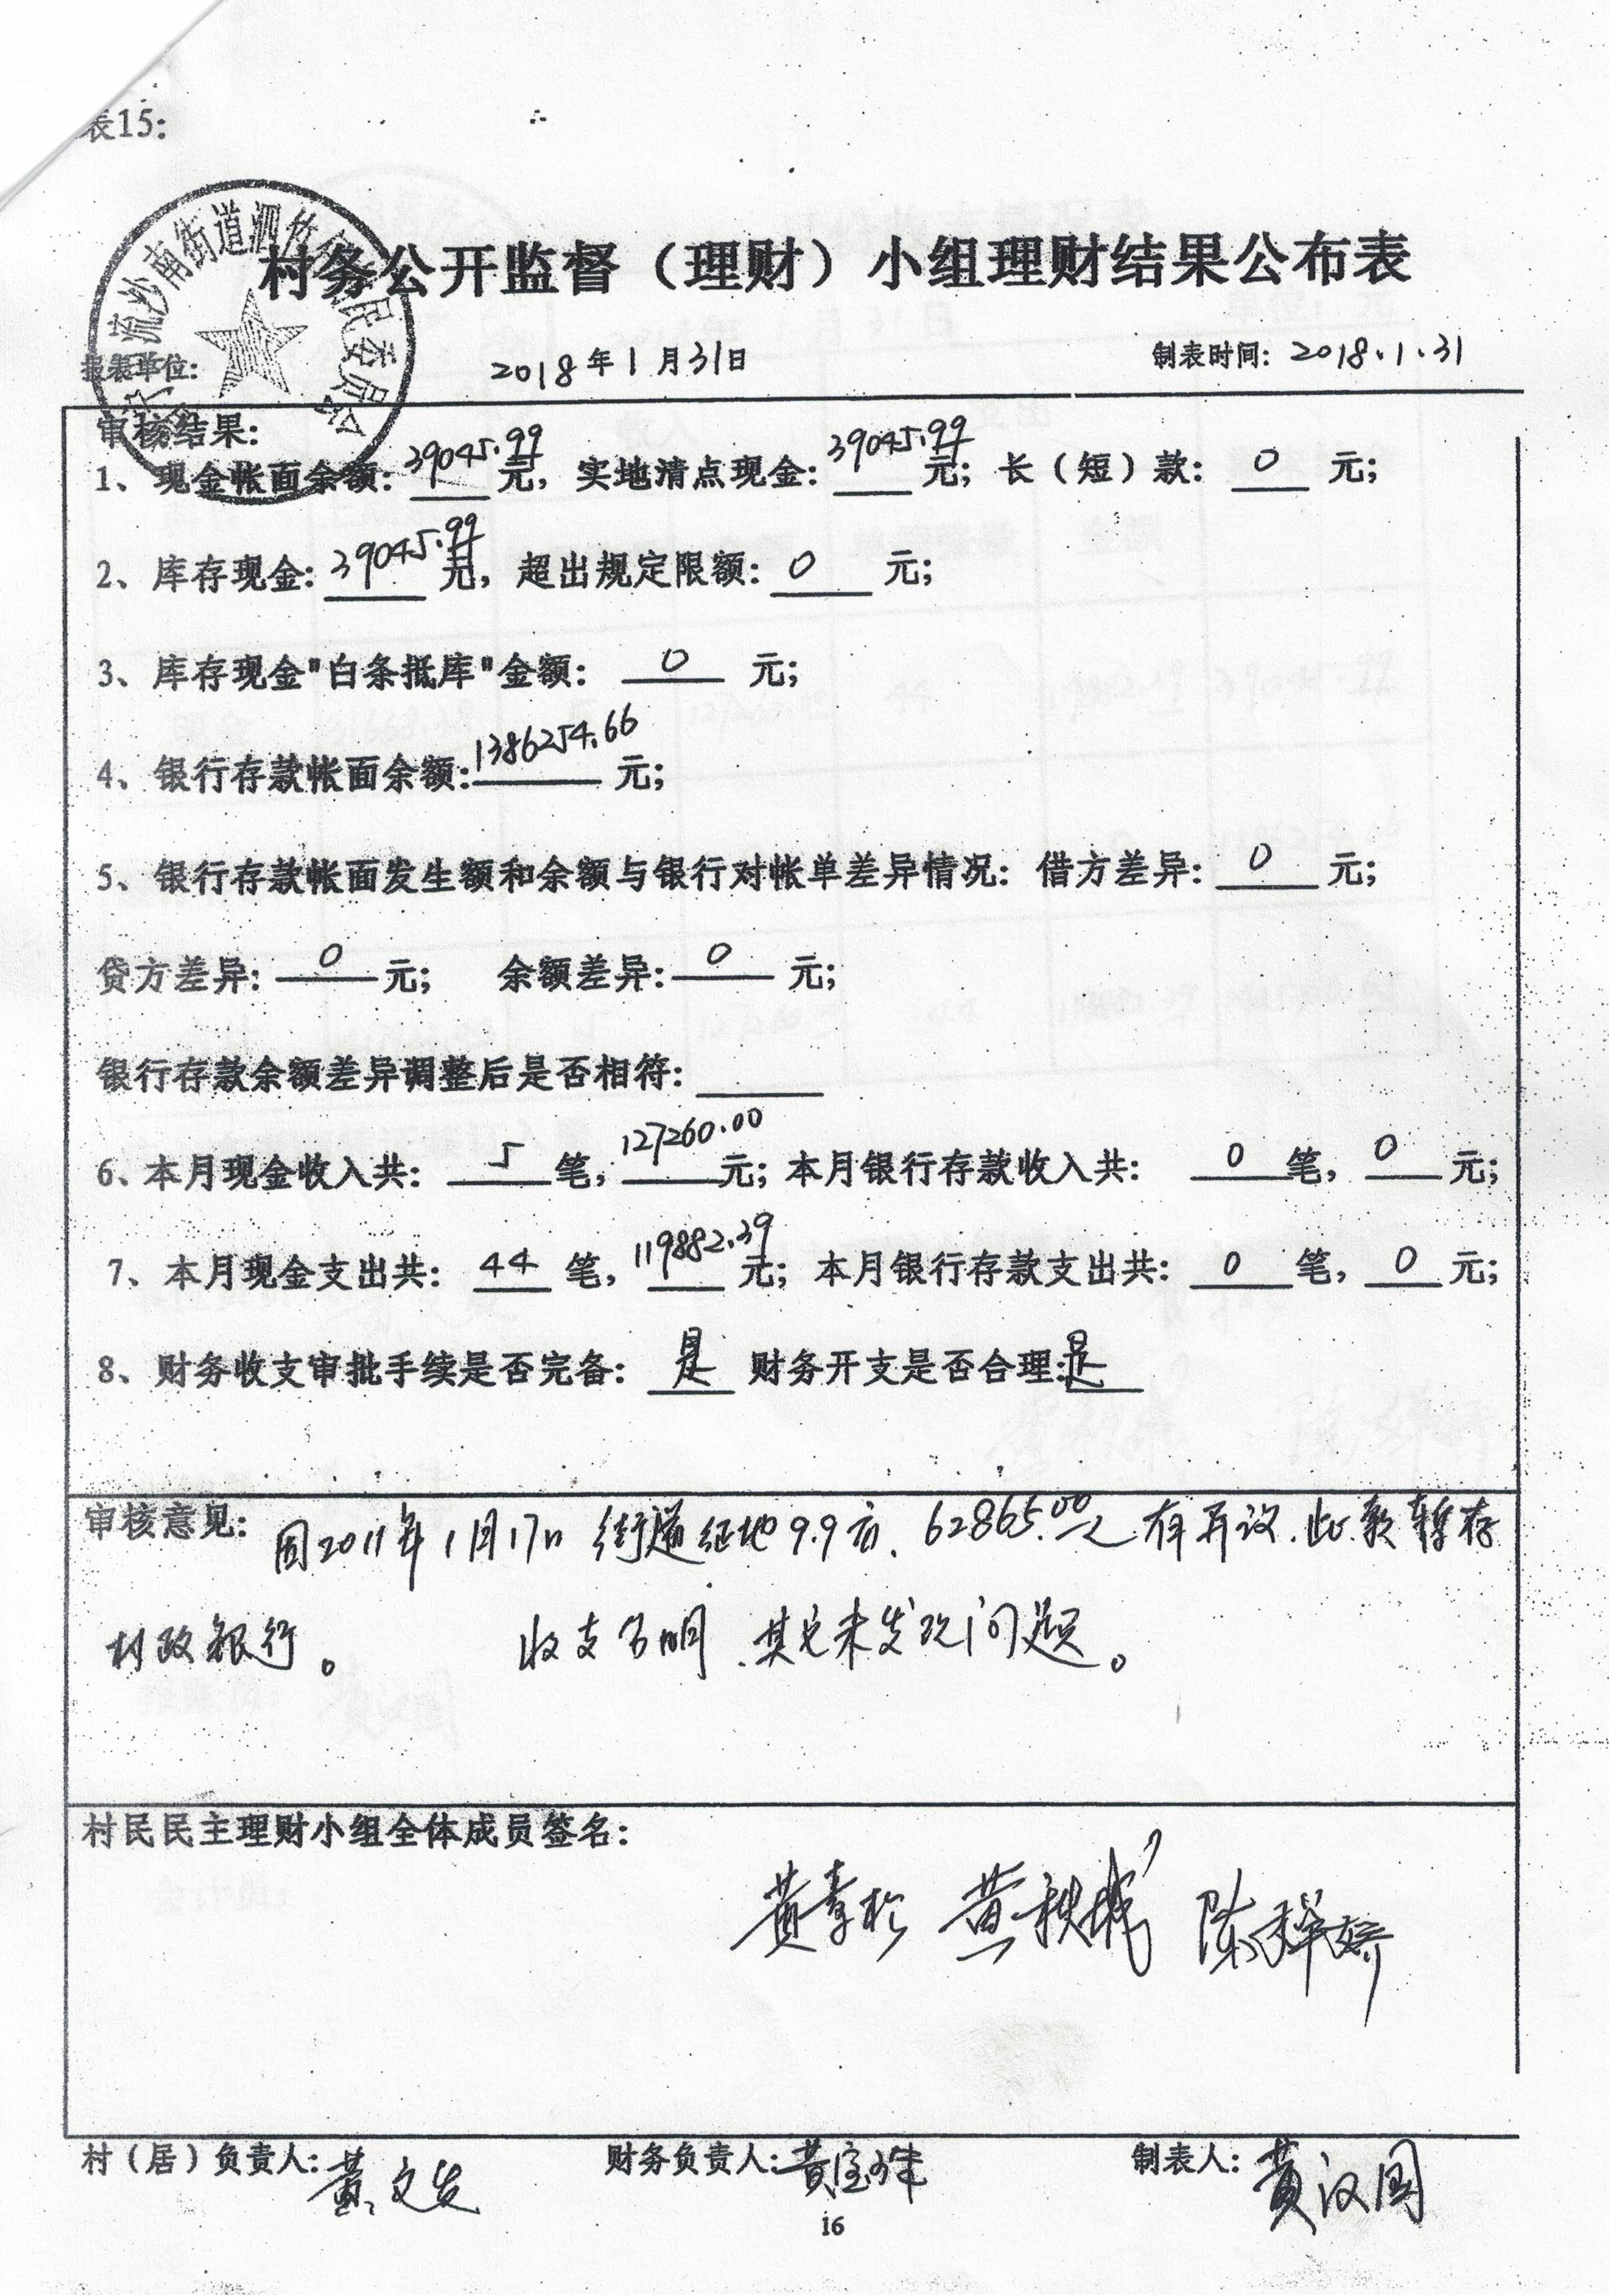 表15:
流沙南街道泗竹 民委员会
村务公开监督（理财）小组理财结果公布表
报表单位: 2018年1月31日 制表时间: 2018.1.31
审核结果:
1、现金帐面余额: 39045.99元, 实地清点现金: 39045.99元; 长（短）款: 0 元;
2、库存现金: 39045.99元, 超出规定限额: 0 元;
3、库存现金"白条抵库"金额: 0 元;
4、银行存款帐面余额: 1386254.66 元;
5、银行存款帐面发生额和余额与银行对帐单差异情况: 借方差异: 0 元;
贷方差异: 0 元; 余额差异: 0 元;
银行存款余额差异调整后是否相符:
6、本月现金收入共: 5 笔, 127260.00元; 本月银行存款收入共: 0 笔, 0 元;
7、本月现金支出共: 44 笔, 119882.39元; 本月银行存款支出共: 0 笔, 0 元;
8、财务收支审批手续是否完备: 是 财务开支是否合理:是
审核意见: 因2011年1月17日街道征地9.9亩、62865.00元有异议.此款暂存
村政银行。 收支分明.其它未发现问题。
村民民主理财小组全体成员签名:
黄 黄 陈
村（居）负责人: 黄文发 财务负责人: 黄宝珠 制表人: 黄汉国
16